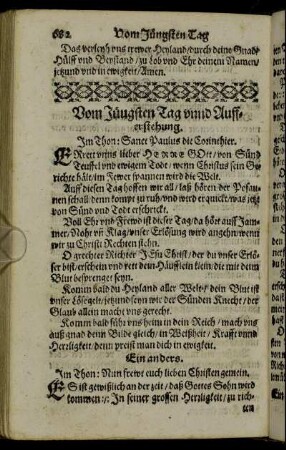 682 Vom Jüngsten Tag
Das verleyh vns trewer Heyland / durch deine Gnad /
Hülff vnd Beystand / zu Lob vnd Ehr deinem Namen /
jetzund vnd in ewigkeit / Amen.
Vom Jüngsten Tag vnnd Auff-
erstehung.
Im Thon: Sanct Paulus die Corinthier.
ERrett vns lieber HERRE GOtt / von Sünd
Teuffel vnd ewigem Todt / wenn Christus sein Ge-
richte hält / im Fewer spannen wird die Welt.
Auff diesen Tag hoffen wir all / laß hören der Posau-
nen schall / denn kompt zu ruh / vnd wird erquickt / was jetzt
von Sünd vnd Todt erschrickt.
Voll Ehr vnd Frewd ist dieser Tag / da hört auff Jam-
mer / Noht vñ Klag / vnser Erlösung wird angehn / wenn
wir zu Christi Rechten stehn.
O grechter Richter JEsu Christ / der du vnser Erlö-
ser bist / erschein vnd rett dein Häufflein klein / die mit deim
Blut besprenget seyn.
Komm bald du Heyland aller Welt / dein Blut ist
vnser Lösegeld / jetzund seyn wir der Sünden Knecht / der
Glaub allein macht vns gerecht.
Komm bald führ vns heim in dein Reich / mach vns
auß gnad deim Bilde gleich / in Weißheit / Krafft vnnd
Herzligkeit / denn preist man dich in ewigkeit.
Ein anders.
Im Thon: Nun frewt euch lieben Christen gemein.
ES ist gewißlich an der zeit / daß Gottes Sohn wird
kommen :/: In seiner grossen Herzligkeit / zu rich-
ten